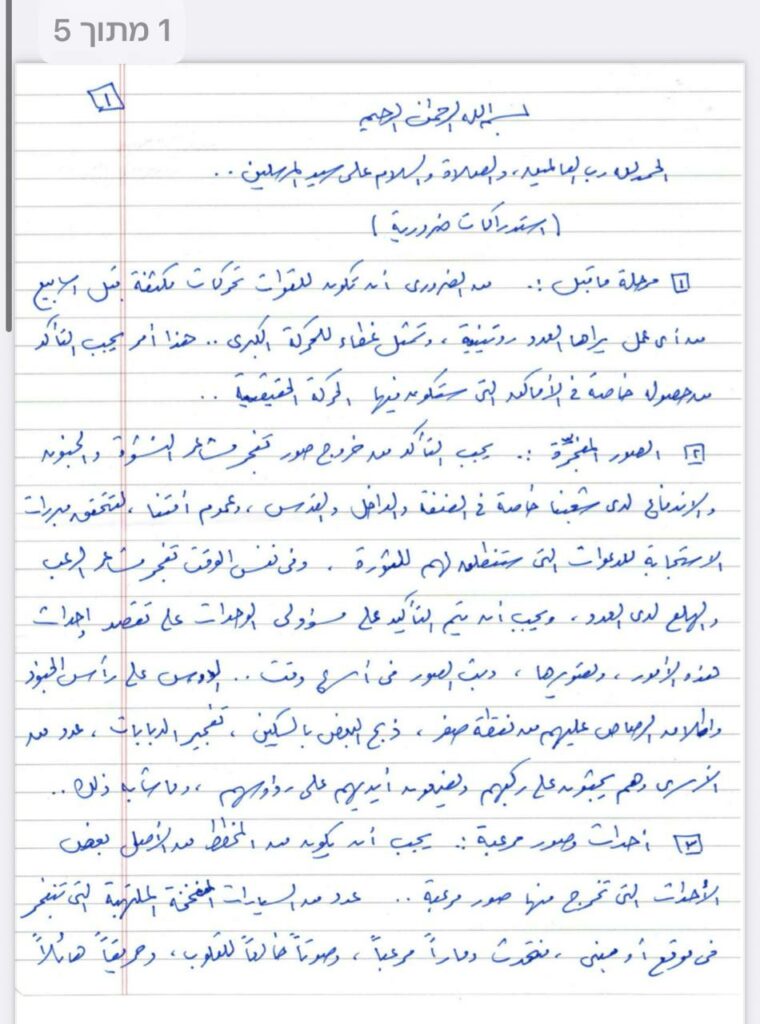 1 מתוך 5
١
بسم الله الرحمن الرحيم
الحمد لله رب العالمين، والصلاة والسلام على سيد المرسلين ..
(استدراكات ضرورية)
١ مرحلة ما قبل :. من الضروري أن تكون للقوات تحركات مكثفة قبل أسابيع
من أي عمل يراها العدو روتينية، وتمثل غطاء للحركة الكبرى .. هذا أمر يجب التأكد
من حصوله خاصة في الأماكن التي ستكون فيها الحركة الحقيقية ..
٢ الصور المفجرة :. يجب التأكد من خروج صور تفجر مشاعر النشوة والجنون
والاندفاع لدى شعبنا خاصة في الضفة والداخل والقدس، وعموم أمتنا، لتتحقق مبررات
الاستجابة للدعوات التي ستنطلق لهم للثورة. وفي نفس الوقت تفجر مشاعر الرعب
والهلع لدى العدو، ويجب أن يتم التأكيد على مسؤولي الوحدات على تقصد إحداث
هذه الأمور، وتصويرها، وبث الصور في أسرع وقت .. الدوس على رأس الجنود
وإطلاق الرصاص عليهم من نقطة صفر، ذبح البعض بالسكين، تفجير الدبابات، عدد من
الأسرى وهم يجثون على ركبهم ويضعون أيديهم على رؤوسهم، وما شابه ذلك ..
٣ أحداث وصور مرعبة :. يجب أن يكون من المخطط من الأصل بعض
الأحداث التي تخرج منها صور مرعبة .. عدد من السيارات المفخخة الملتهبة التي تنفجر
في موقع أو مبنى، فتحدث دماراً مرعباً، وصوتاً خالعاً للقلوب، وحريقاً هائلاً